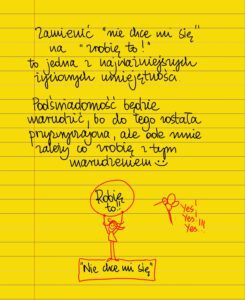 Zamienić "nie chce mi się"
na "zrobię to!"
to jedna z najważniejszych
życiowych umiejętności.
Podświadomość będzie
marudzić, bo do tego została
przyzwyczajona, ale ode mnie
zależy co zrobię z tym
marudzeniem
Robię
to!!
Yes!
Yes!
Yes!!!
"Nie chce mi się"